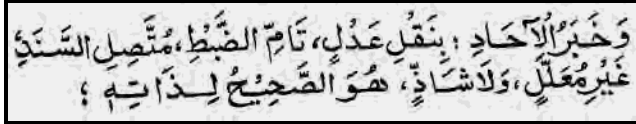 وَخَبَرُالْآحَادِ ؛ بِنَقْلِ عَدْلٍ، تَامِّ الضَّبْطِ، مُتَّصِلِ السَّنَدِ،
غَيْرِ مُعَلَّلٍ، وَلَا شَاذٍّ، هُوَ الصَّحِيْحُ لِذَاتِهِ ؛